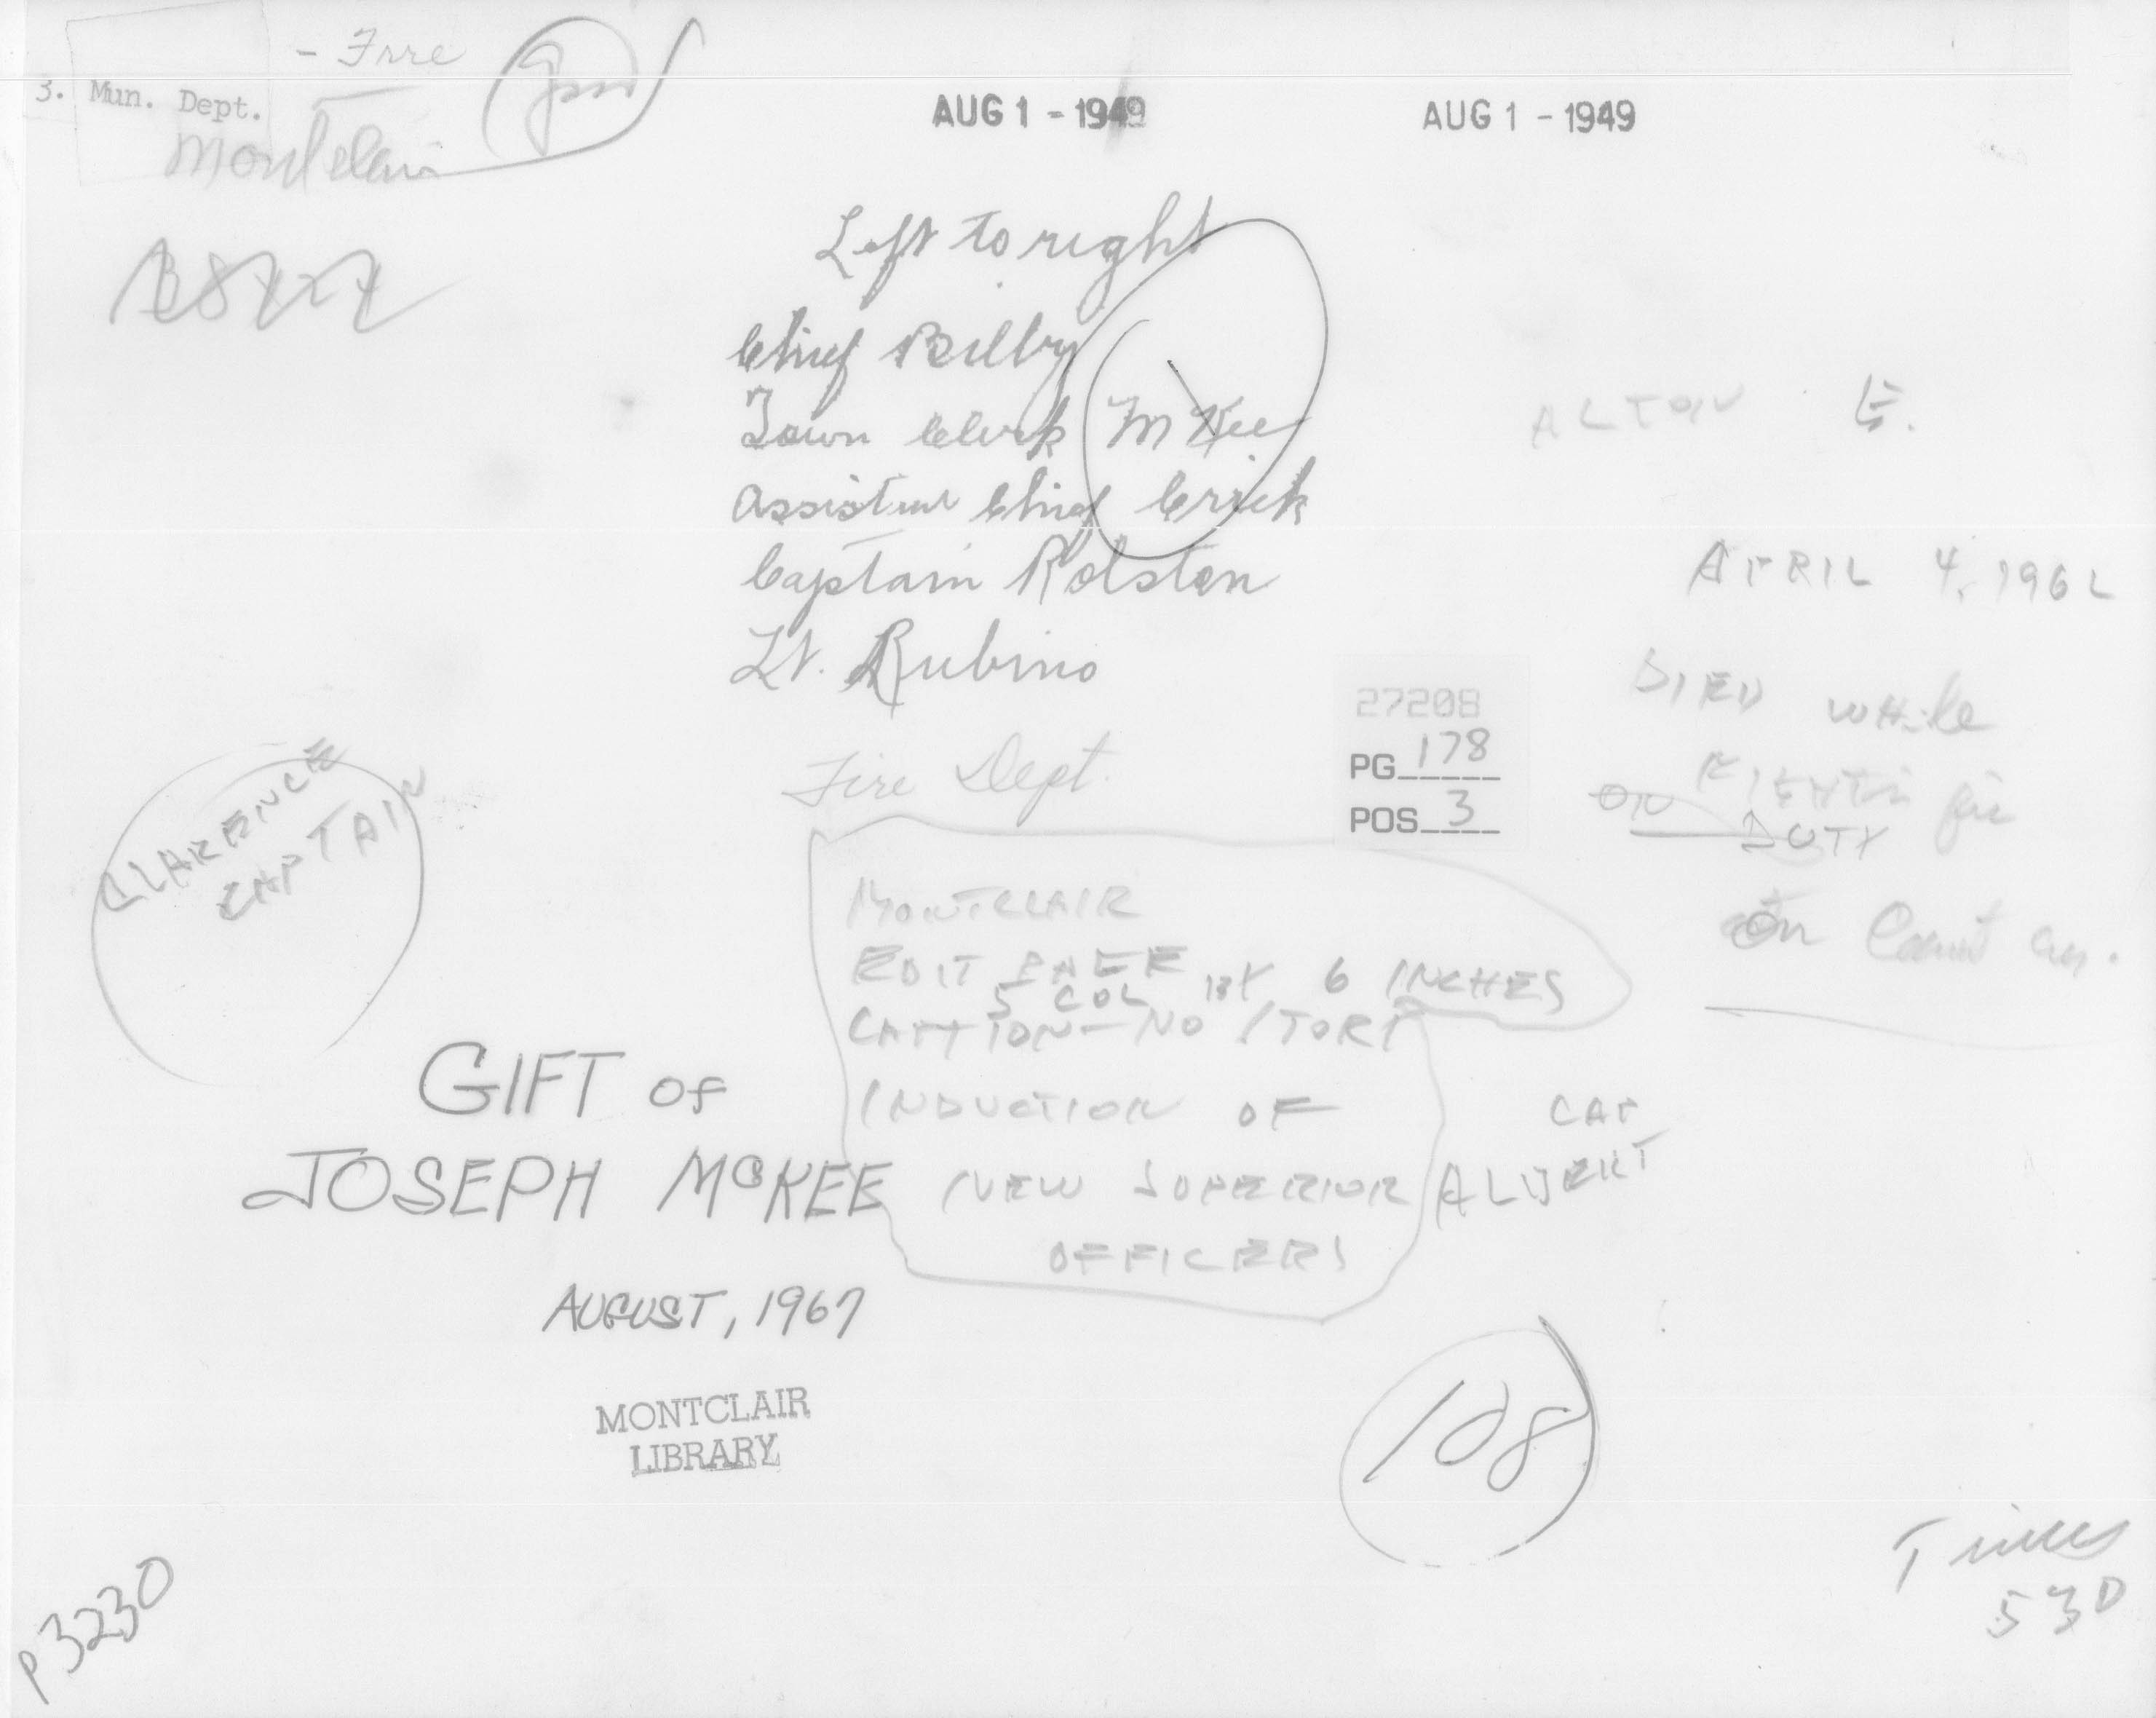 - Fire
3. Mun. Dept.
Montclair
AUG 1 - 1949
AUG 1 - 1949
Left to right
Chief Bilby
Town Clerk McKee
Assistant Chief Crick
Captain Rolston
Lt. Rubino
Fire Dept.
ALTON E.
APRIL 4, 1962
DIED while
FIGHTIN fire
ON DUTY
On
27208
PG 178
POS 3
CLARENCE
CAPTAIN
MONTCLAIR
EDIT PAGE
5 COL BY 6 INCHES
CAPTION - NO STORY
INDUCTION OF
NEW SUPERIOR
OFFICERS
CAP
ALBERT
GIFT OF
JOSEPH McKEE
AUGUST, 1967
MONTCLAIR
LIBRARY
108
P3230
Times
530